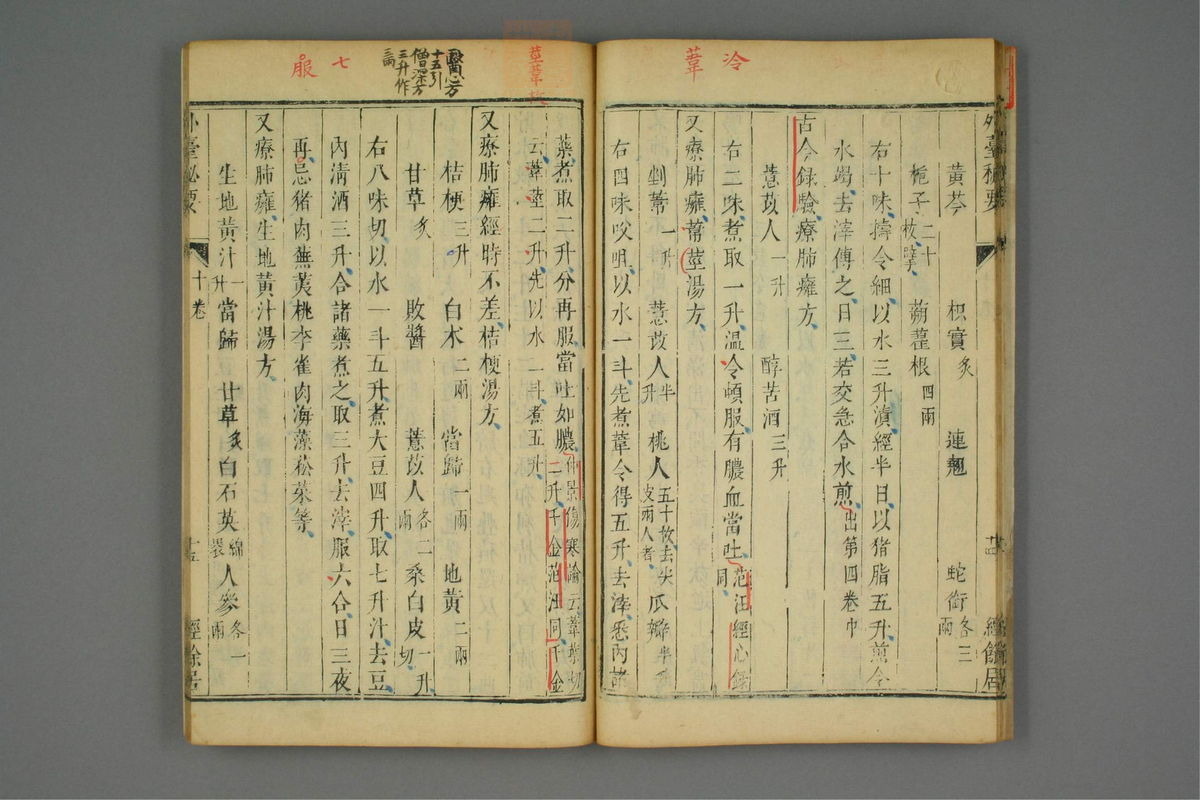 冷
葦
黃芩 枳實炙 連翹 蛇銜各三兩
梔子二十枚擘 蒴藋根四兩
右十味擣令細以水三升漬經半日以猪脂五升煎令
水竭去滓傅之日三若交急合水煎出第四卷中
古今録驗療肺癰方
薏苡人一升 醇苦酒三升
右二味煮取一升温令頓服有膿血當吐范汪經心録同
又療肺癰葦莖湯方
剉葦一升 薏苡人半升 桃人五十枚去尖皮兩人者 瓜瓣半升
右四味㕮咀以水一斗先煮葦令得五升去滓悉內諸
外臺秘要
經餘居
醫心方
十五引
僧深方
三升作
三兩
七
服
藥煮取二升分再服當吐如膿仲景傷寒論云葦葉切
二升千金范汪同千金
云葦莖二升先以水二斗煮五升
又療肺癰經時不差桔梗湯方
桔梗三升 白术二兩 當歸一兩 地黃二兩
甘草炙 敗醬 薏苡人各二兩 桑白皮一升切
右八味切以水一斗五升煮大豆四升取七升汁去豆
內清酒三升合諸藥煮之取三升去滓服六合日三夜
再忌猪肉蕪荑桃李雀肉海藻菘菜等
又療肺癰生地黃汁湯方
生地黃汁一升 當歸 甘草炙 白石英綿裹 人參各一兩
外臺秘要
十卷
十五
經餘居